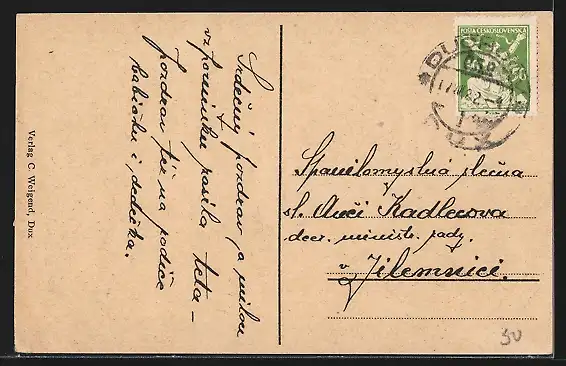 Srdečný pozdrav a milou
vzpomínku posílá teta -
Pozdrav též na rodiče
babičku i dědečka.
Verlag C. Weigend, Dux
POŠTA ČESKOSLOVENSKÁ
DUCHCOV
DUX
Spanilomyslná slečna
sl. Kadlecova
dcer. minist. rady
v Jilemnici.
50